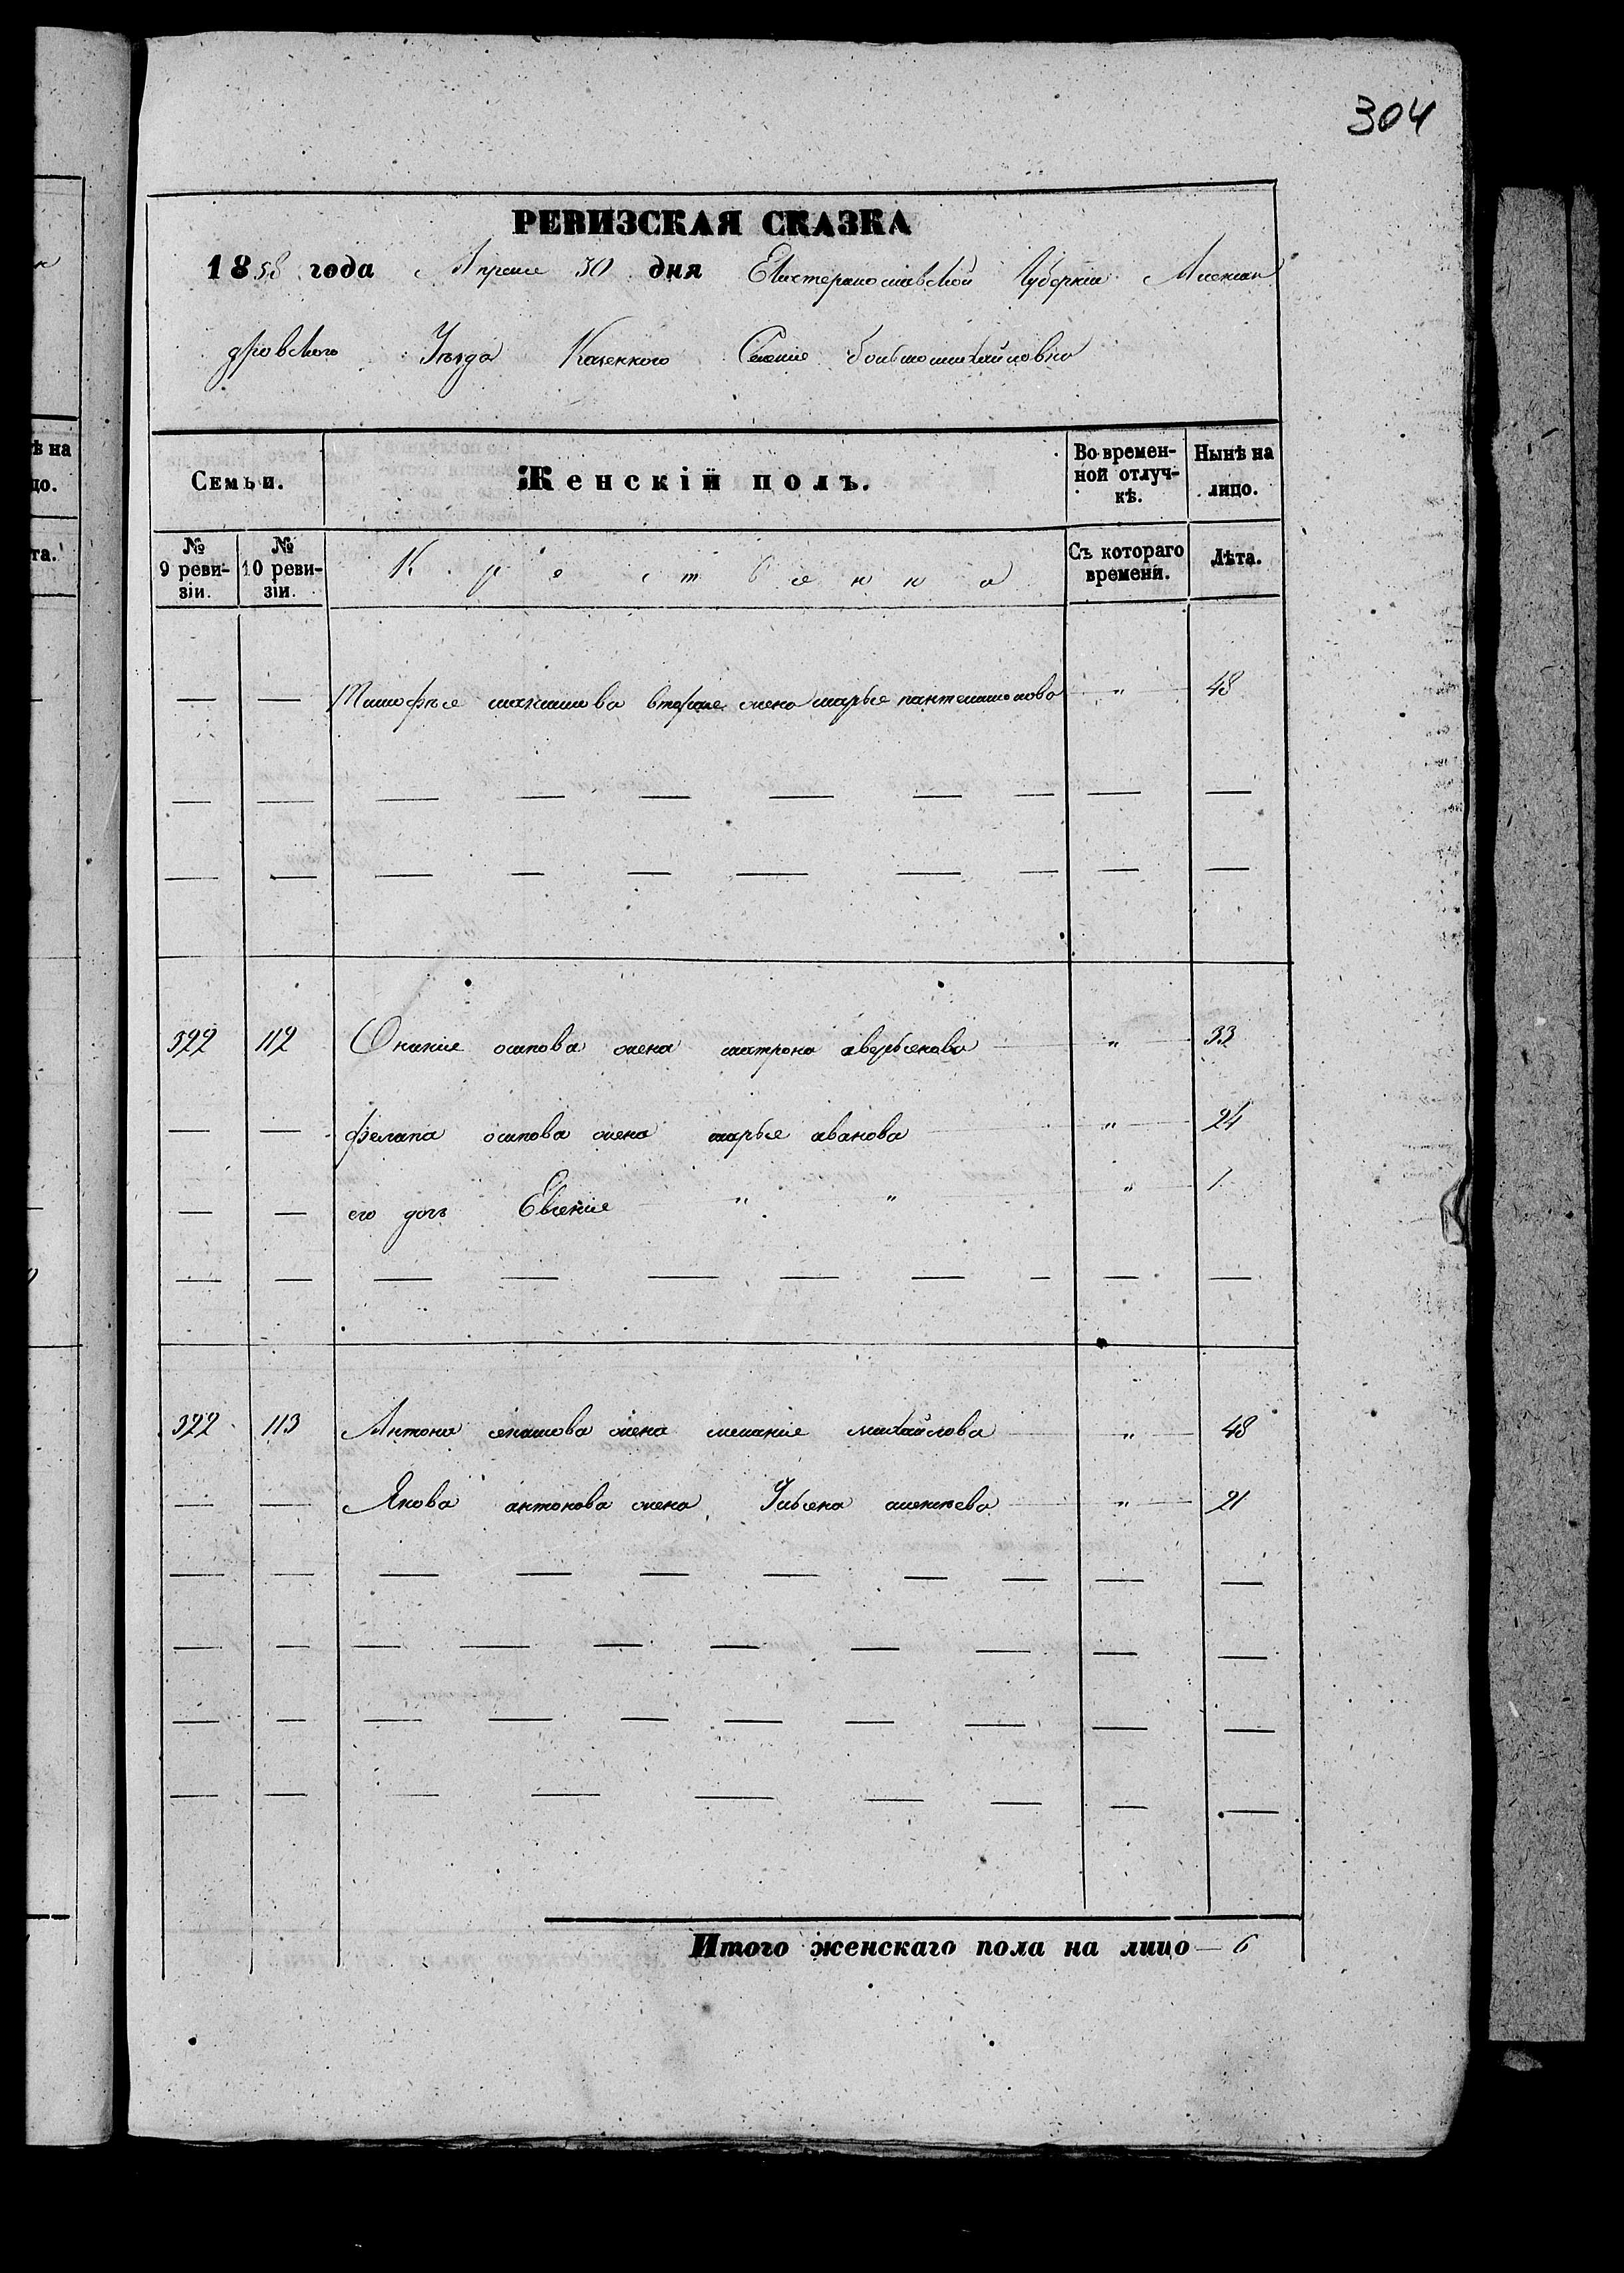 304
РЕВИЗСКАЯ СКАЗКА
1858 года Апреля 30 дня Екатеринославской Губернии Алексан
дровского Уезда Казенного Селение большомихайловки
Семьи. Женскій полъ. Во времен-ной отлуч-кѣ. Нынѣ на лицо.
№ 9 реви-зіи. № 10 реви-зіи. Съ котораго времени. Лѣта.
— — Тимофея максимова вторая жена марья пантелимонова " 48
322 112 Онания осипова жена матрона аверьянова " 33
— — филипа осипова жена марья иванова " 24
— — его дочь Евгения " " " 1
322 113 Антона жена мелания михайлова " 48
— — Якова антонова жена Ульяна алексеева " 21
Итого женскаго пола на лицо — 6
ѣ на
цо.
та.